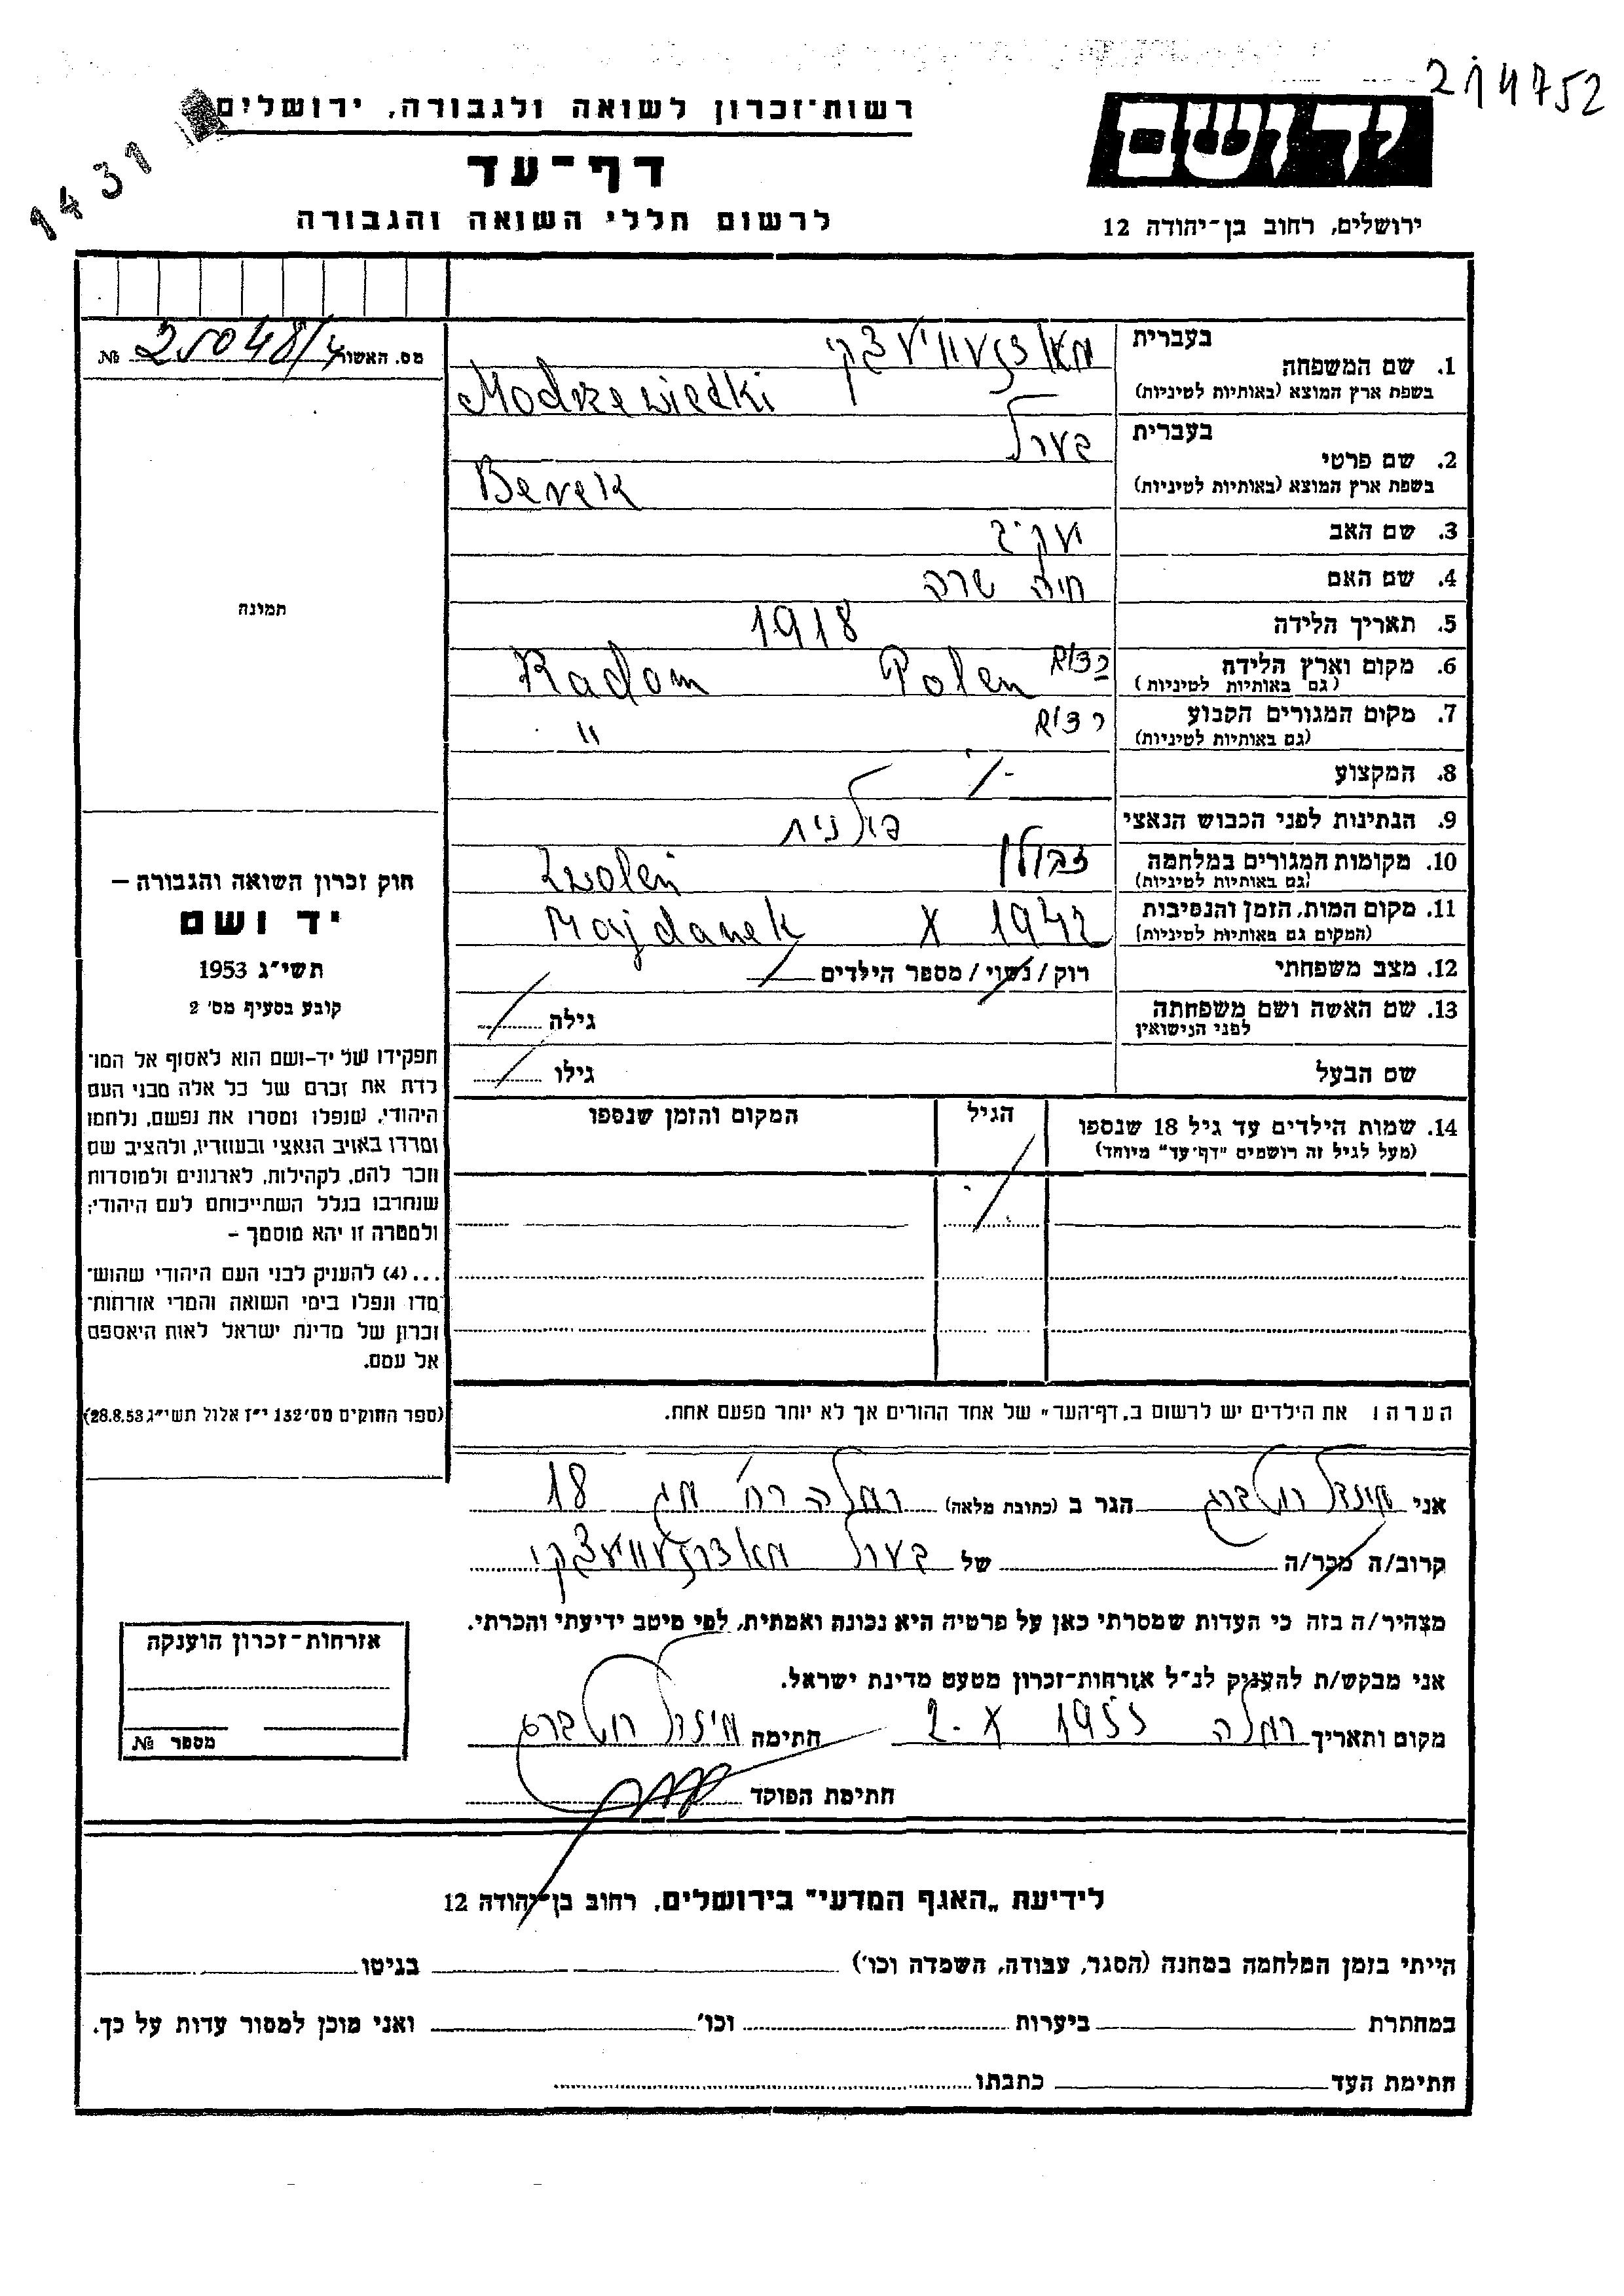 214752
1431
רשות־זכרון לשואה ולגבורה, ירושלים
יד ושם
דף־עד
לרשום חללי השואה והגבורה
ירושלים, רחוב בן־יהודה 12
מס. האשור 25048/4 №
בעברית
1. שם המשפחה
בשפת ארץ המוצא (באותיות לטיניות)
Modrzewiedki
בעברית
2. שם פרטי
בשפת ארץ המוצא (באותיות לטיניות)
בערל
Berek
3. שם האב
4. שם האם חיה שרה
5. תאריך הלידה 1918
6. מקום וארץ הלידה
(גם באותיות לטיניות)
Polen Radom
7. מקום המגורים הקבוע
(גם באותיות לטיניות)
"
8. המקצוע -/
9. הנתינות לפני הכבוש הנאצי פולנית
10. מקומות המגורים במלחמה
(גם באותיות לטיניות)
Zwoleń
11. מקום המות, הזמן והנסיבות
(המקום גם באותיות לטיניות)
1942 X Majdanek
12. מצב משפחתי רוק/נשוי/מספר הילדים
13. שם האשה ושם משפחתה
לפני הנישואין
גילה
שם הבעל גילו
14. שמות הילדים עד גיל 18 שנספו
(מעל לגיל זה רושמים "דף־עד" מיוחד)
הגיל
המקום והזמן שנספו
הערה: את הילדים יש לרשום ב„דף־העד" של אחד ההורים אך לא יותר מפעם אחת.
תמונה
חוק זכרון השואה והגבורה –
יד ושם
תשי"ג 1953
קובע בסעיף מס' 2
תפקידו של יד-ושם הוא לאסוף אל המו־
לדת את זכרם של כל אלה מבני העם
היהודי, שנפלו ומסרו את נפשם, נלחמו
ומרדו באויב הנאצי ובעוזריו, ולהציב שם
וזכר להם, לקהילות, לארגונים ולמוסדות
שנחרבו בגלל השתייכותם לעם היהודי;
ולמטרה זו יהא מוסמך –
...(4) להעניק לבני העם היהודי שהוש־
מדו ונפלו בימי השואה והמרי אזרחות־
זכרון של מדינת ישראל לאות היאספם
אל עמם.
(ספר החוקים מס' 132 י"ז אלול תשי"ג 28.8.53)
אני הגר ב (כתובת מלאה) רמלה רח' 18
קרוב/ה מכר/ה של בערל
מצהיר/ה בזה כי העדות שמסרתי כאן על פרטיה היא נכונה ואמתית, לפי מיטב ידיעתי והכרתי.
אני מבקש/ת להעניק לנ"ל אזרחות־זכרון מטעם מדינת ישראל.
מקום ותאריך רמלה 2-X 1955 חתימה
חתימת הפוקד
אזרחות־זכרון הוענקה
מספר №
לידיעת „האגף המדעי" בירושלים, רחוב בן־יהודה 12
הייתי בזמן המלחמה במחנה (הסגר, עבודה, השמדה וכו') בגיטו
במחתרת ביערות וכו' ואני מוכן למסור עדות על כך.
חתימת העד כתבתו